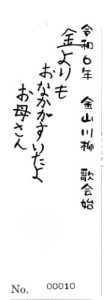 令和6年 金山川柳 歌会始
金よりも
おなかがすいたよ
お母さん
No. 00010